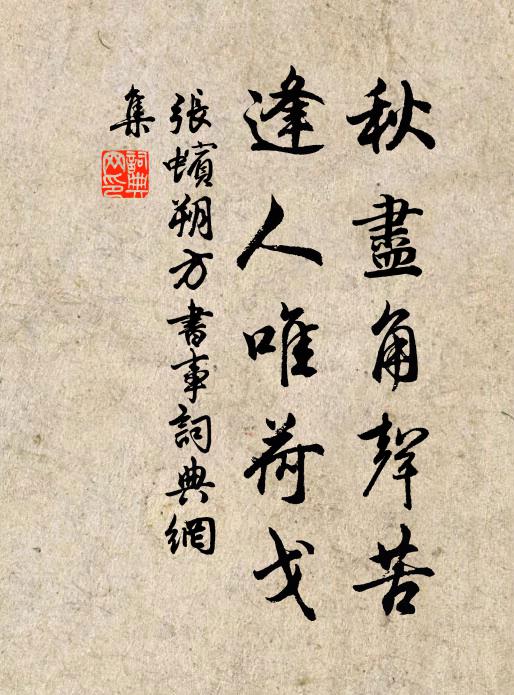 秋盡角聲苦
逢人唯荷戈
張蠙朔方書事詞典網
集
詞典
网印